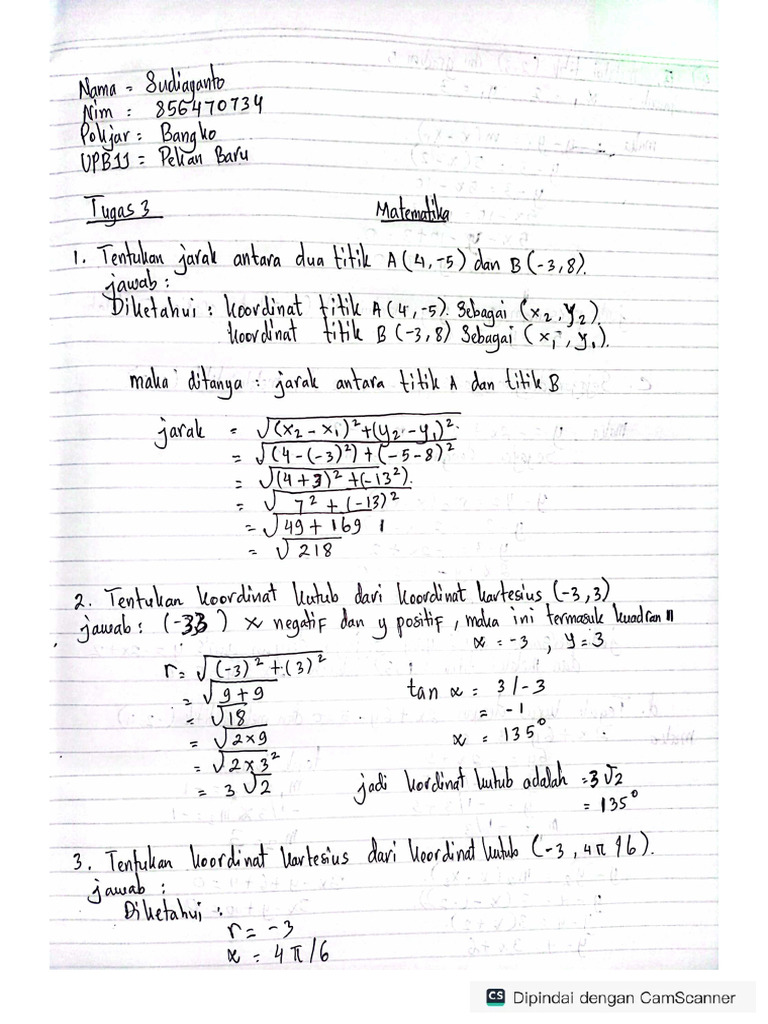 Nama = Sudiaganto
Nim : 856470734
Pokjar : Bangko
UPBJJ = Pekan Baru
Tugas 3 Matematika
1. Tentukan jarak antara dua titik A (4,-5) dan B (-3,8).
jawab :
Diketahui : koordinat titik A (4,-5). Sebagai (x₂, y₂).
koordinat titik B (-3,8) Sebagai (x₁, y₁).
maka ditanya : jarak antara titik A dan titik B
jarak = √(x₂ - x₁)² + (y₂ - y₁)².
= √(4 - (-3)²) + (-5-8)²
= √(4+3)² + (-13²).
= √7² + (-13)²
= √49 + 169
= √218
2. Tentukan koordinat kutub dari koordinat kartesius (-3,3)
jawab : (-33) x negatif dan y positif, maka ini termasuk kuadran II
x = -3 , y = 3
r = √(-3)² + (3)²
= √9+9
= √18
= √2x9
= √2x3²
= 3√2
tan α = 3/-3
= -1
α = 135°
jadi kordinat kutub adalah = 3√2
= 135°
3. Tentukan koordinat kartesius dari koordinat kutub (-3, 4π/6).
jawab :
Diketahui :
r = -3
α = 4π/6
CS Dipindai dengan CamScanner